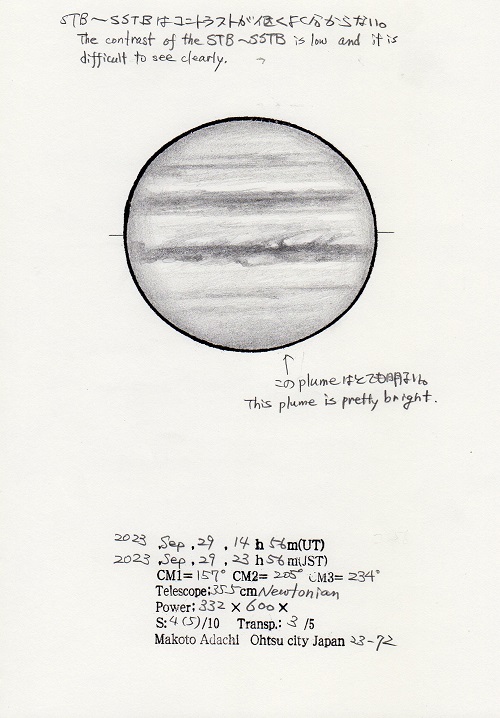 STB～SSTBはコントラストが低くよく分からない。
The contrast of the STB～SSTB is low and it is
difficult to see clearly.
このplumeはとても明るい。
This plume is pretty bright.
2023 ,Sep , 29 , 14 h 56m(UT)
2023 ,Sep , 29 , 23 h 56m(JST)
CM1= 157° CM2= 205° CM3= 234°
Telescope;35.5cm Newtonian
Power; 332 × 600 ×
S: 4(5)/10 Transp.: 3 /5
Makoto Adachi Ohtsu city Japan 23-72